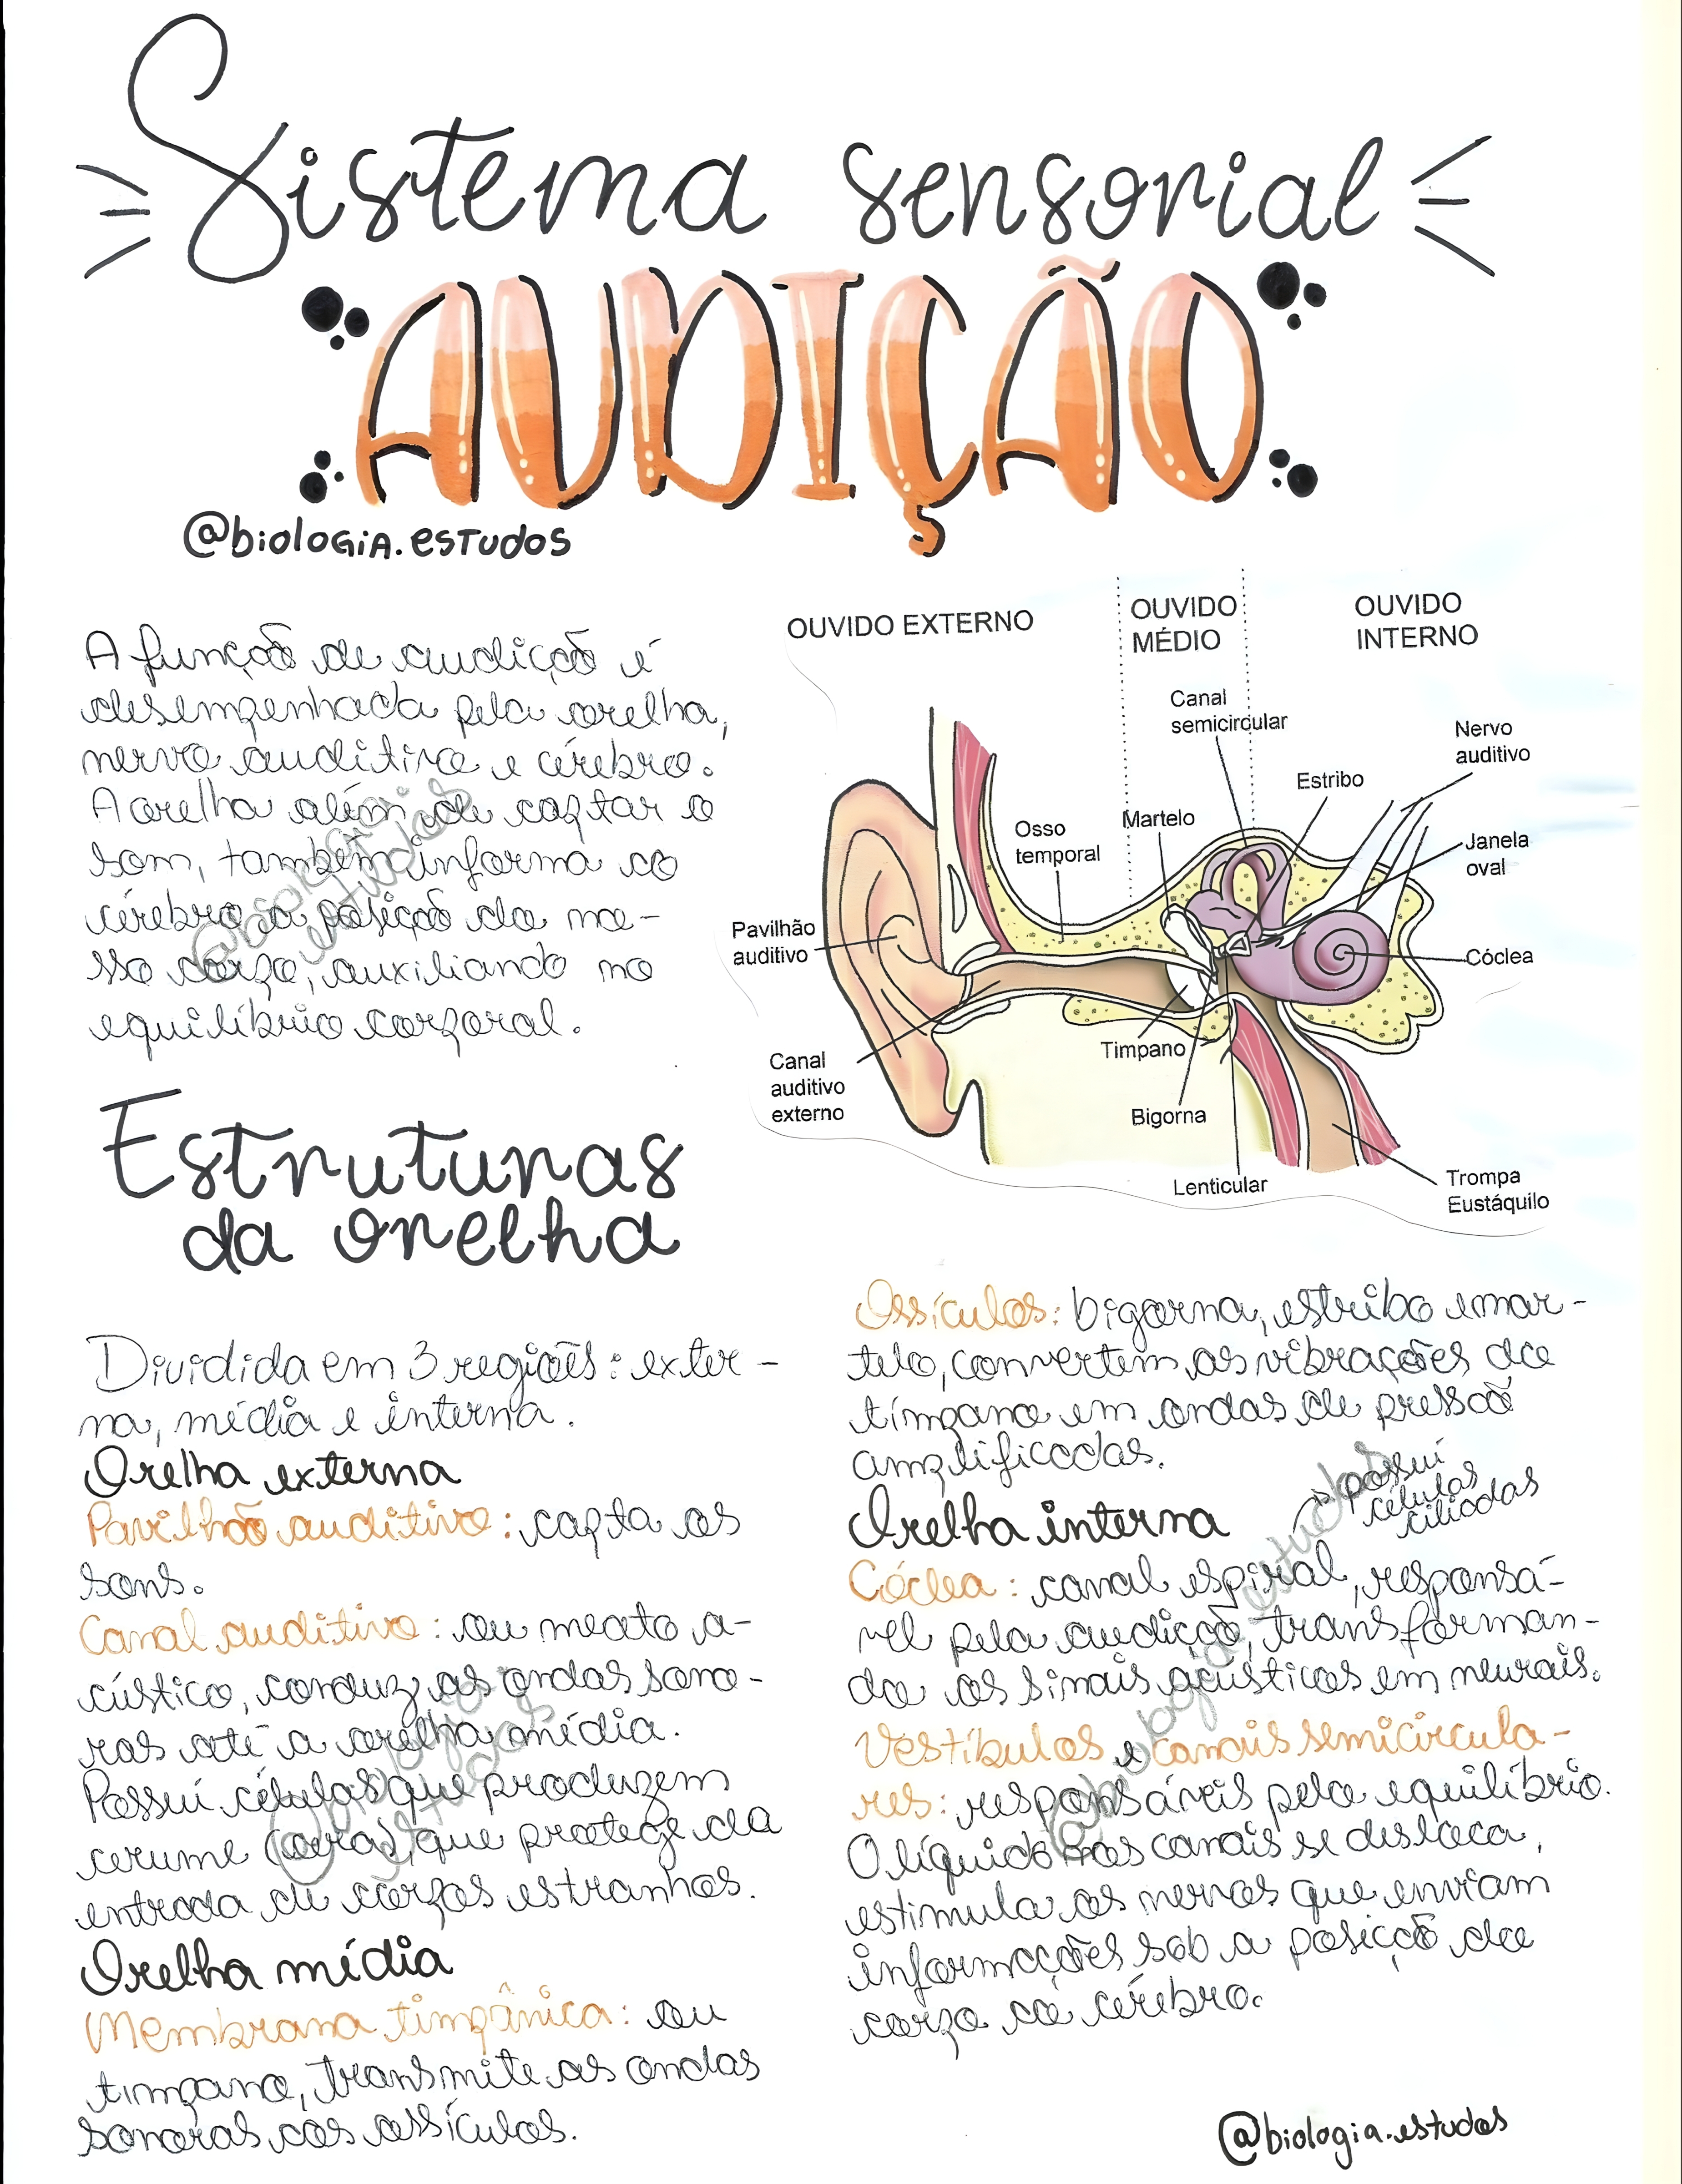 Sistema sensorial
AUDIÇÃO
@biologia.estudos
A função de audição é
desempenhada pela orelha,
nervo auditivo e cérebro.
A orelha além de captar o
som, também informa ao
cérebro a posição do no-
sso corpo, auxiliando no
equilíbrio corporal.
@biologia.
estudos
OUVIDO EXTERNO
OUVIDO
MÉDIO
OUVIDO
INTERNO
Canal
semicircular
Nervo
auditivo
Estribo
Martelo
Osso
temporal
Janela
oval
Pavilhão
auditivo
Cóclea
Timpano
Canal
auditivo
externo
Bigorna
Lenticular
Trompa
Eustáquilo
Estruturas
da orelha
Dividida em 3 regiões: exter-
na, média e interna.
Orelha externa
Pavilhão auditivo: capta os
sons.
Canal auditivo: ou meato a-
cústico, conduz as ondas sono-
ras até a orelha média.
Possui células que produzem
cerume (cera), que protege da
entrada de corpos estranhos.
@biologia.
estudos
Orelha média
Membrana timpânica: ou
timpano, transmite as ondas
sonoras aos ossículos.
Ossículos: bigorna, estribo e mar-
telo, convertem as vibrações do
tímpano em ondas de pressão
amplificadas.
Orelha interna
possui
células
ciliadas
Cóclea: canal espiral, responsá-
vel pela audição, transforman-
do os sinais acústicos em neurais.
Vestíbulos e canais semicircula-
res: responsáveis pelo equilíbrio.
O líquido nos canais se desloca,
estimula os nervos que enviam
informações sob a posição do
corpo ao cérebro.
@biologia.estudos
@biologia.estudos